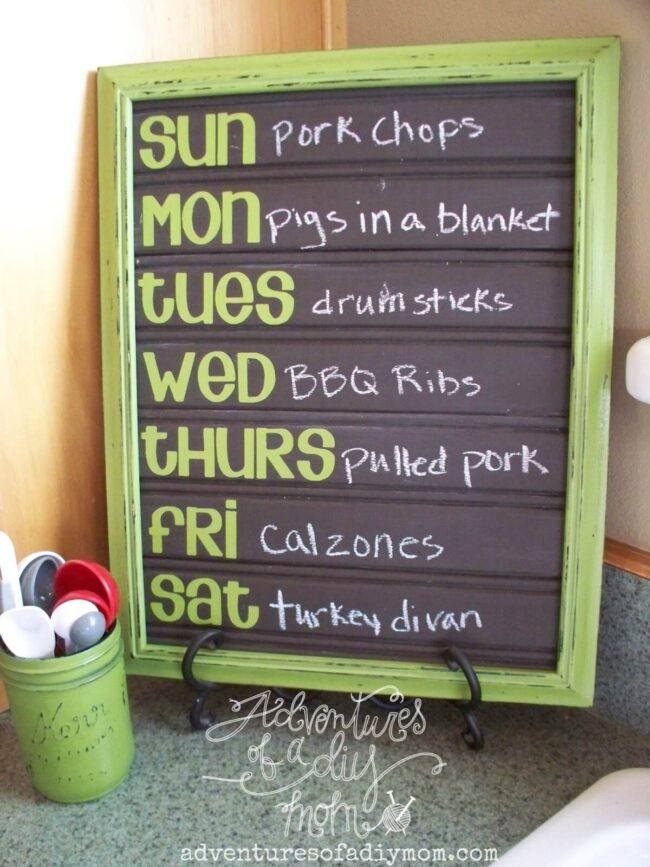 SUN pork chops
MON pigs in a blanket
tUES drumsticks
WED BBQ Ribs
tHURS pulled pork
fRi Calzones
Sat turkey divan
Kerr
Adventures
of a diy
mom
adventuresofadiymom.com